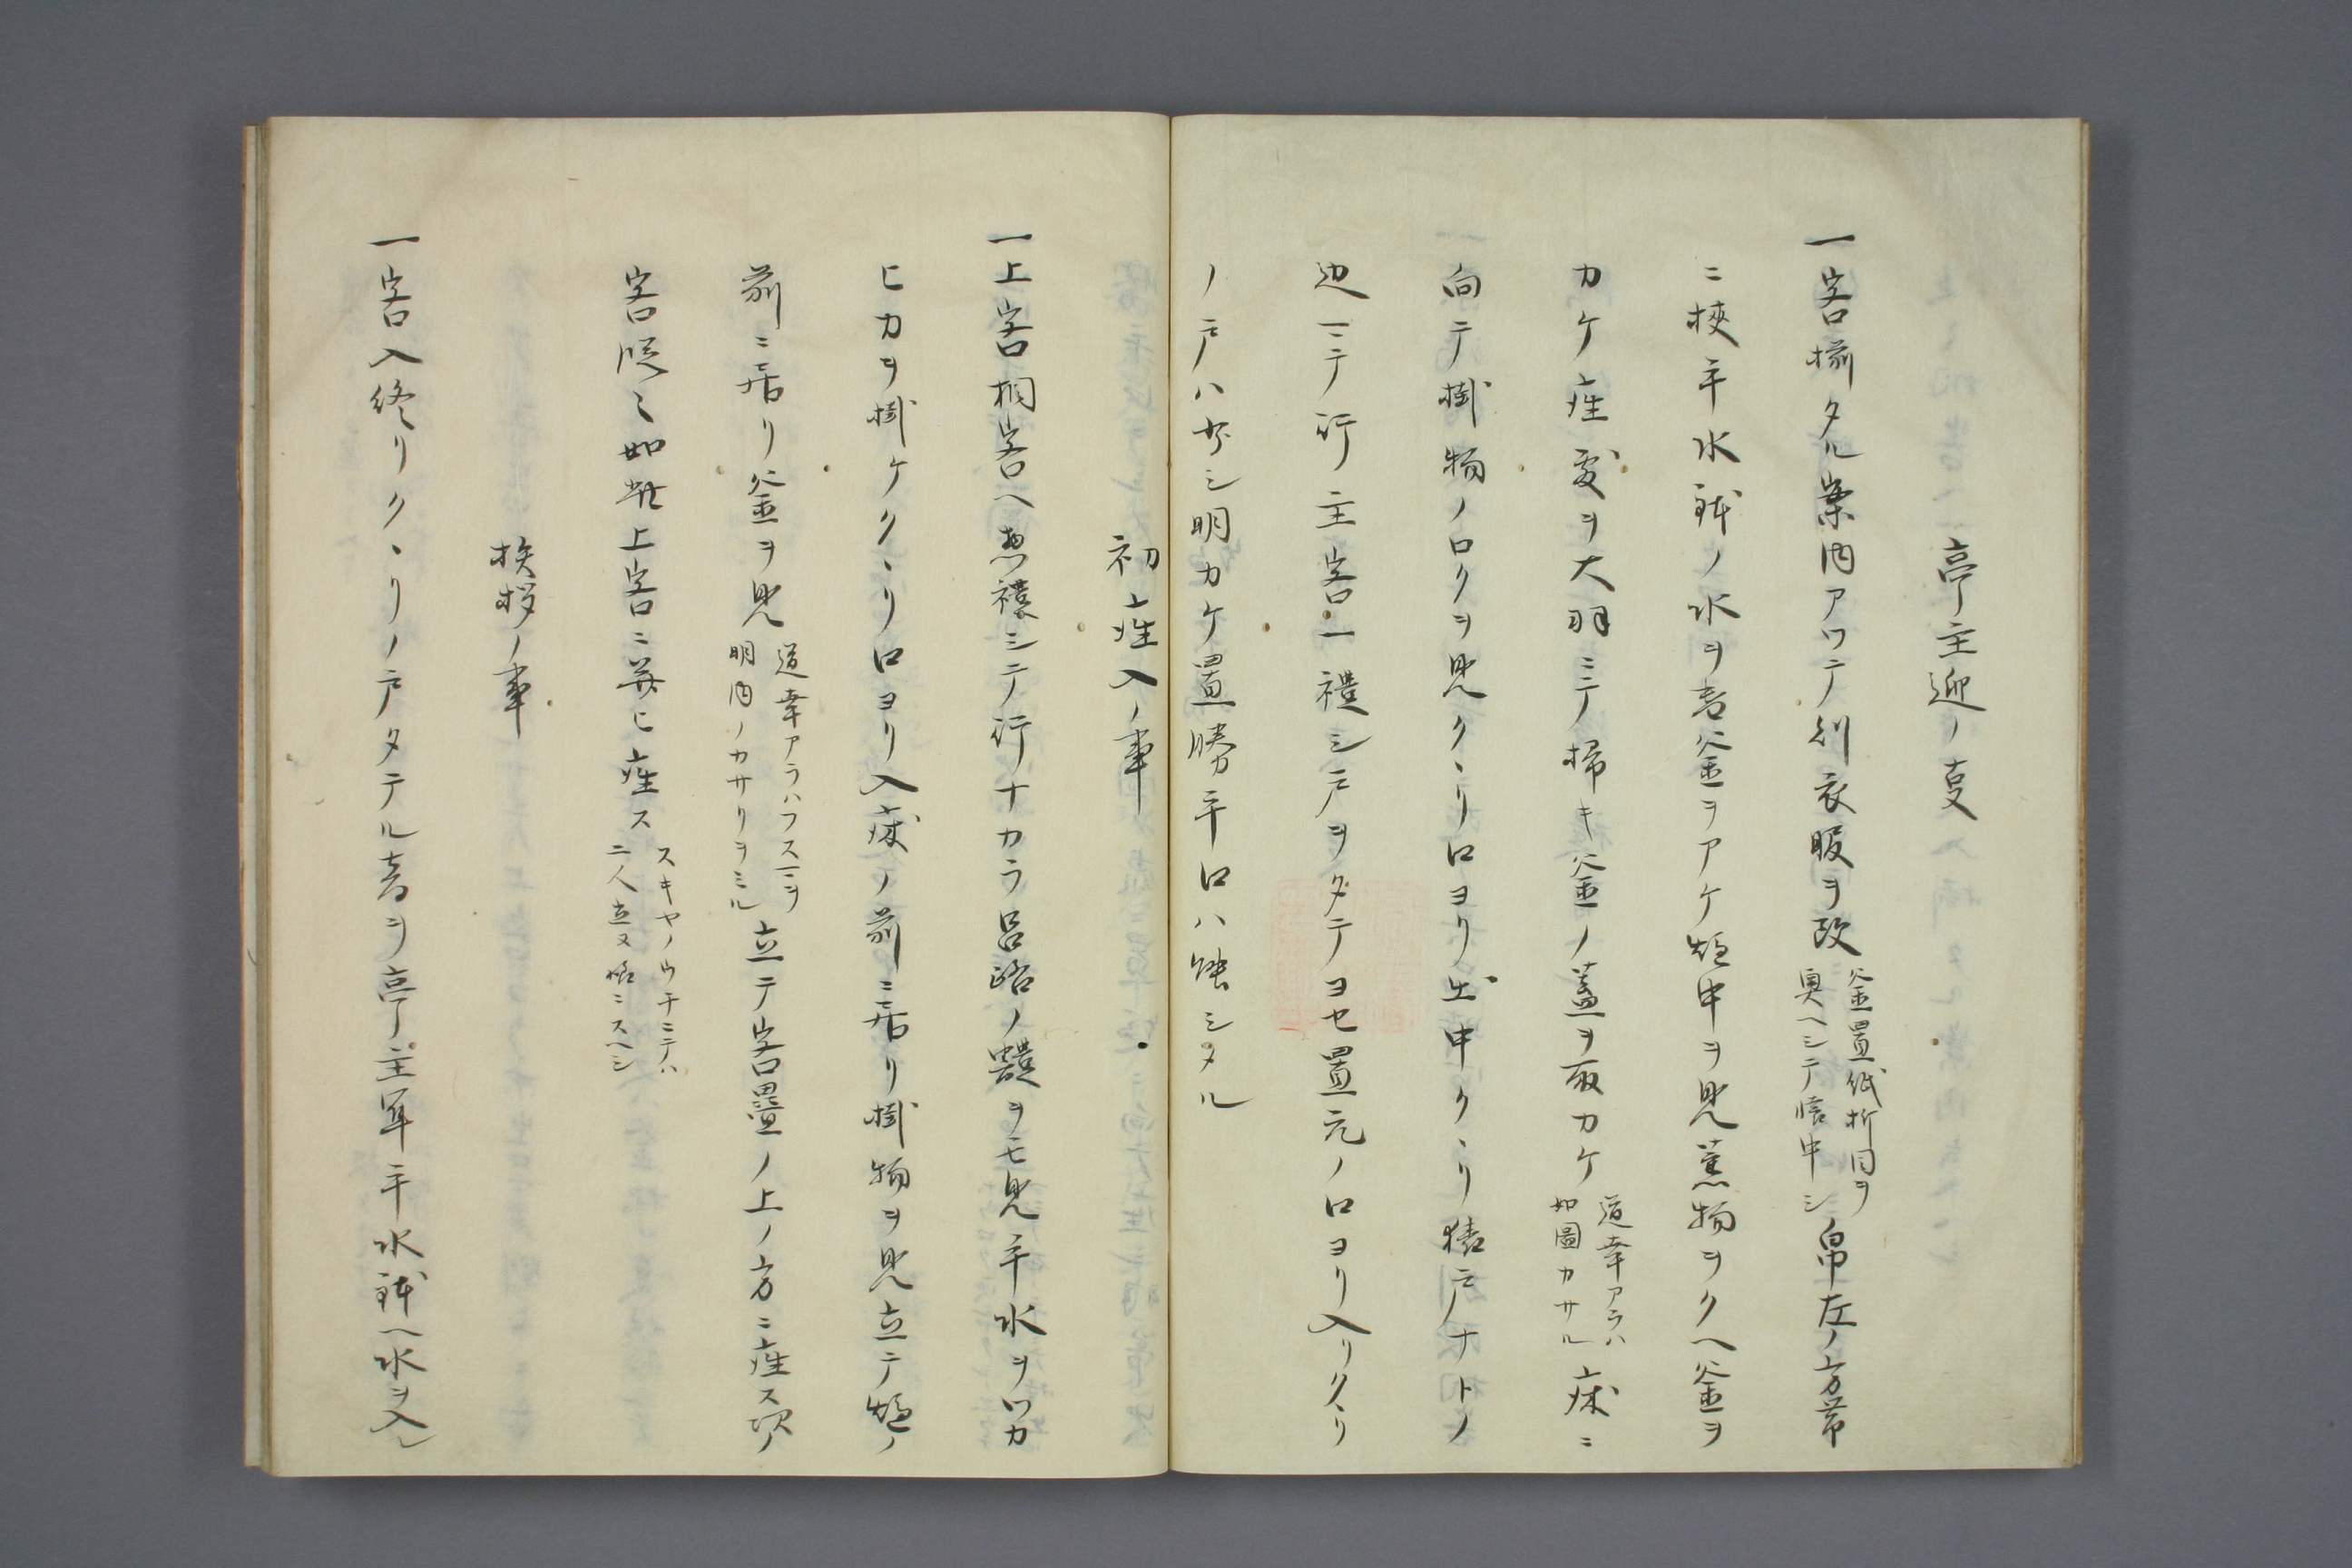 亭主迎ノ㕝
一客揃タル案内アツテ則衣服ヲ改
釜置紙折目ヲ
奥ヘシテ懐中シ
帛左ノ方帯
ニ挾手水鉢ノ水ヲ
釜ヲアケ炉中ヲ見薫物ヲクヘ釜ヲ
カケ座敷ヲ大羽ニテ掃キ釜ノ蓋ヲ取カケ
道幸アラハ
如圖カサル
床ニ
向テ掛物ノロクヲ見クヽリ口ヨリ出中クヽリ猿戸ナトノ
辺ニテ行主客一禮シ戸ヲタテヨセ置元ノ口ヨリ入リクヽリ
ノ戸ハ少シ明カケ置勝手口ハ
シタル
初座入ノ事
一上客相客ヘ惣禮シテ行ナカラ呂路ノ
ヲモ見手水ヲツカ
ヒカヲ掛ケクヽリ口ヨリ入床ノ前ニ居リ掛物ヲ見立テ炉ノ
前ニ居リ釜ヲ見
道幸アラハフスマヲ
明内ノカサリヲミル
立テ客畳ノ上ノ方ニ座ス次ノ
客段々如此上客ニ並ヒ座ス
スキヤノウチニテハ
二人立又
ニスヘシ
挨拶ノ事
一客入終リクヽリノ戸タテル音ヲ亭主
手水鉢ヘ水ヲ入ル